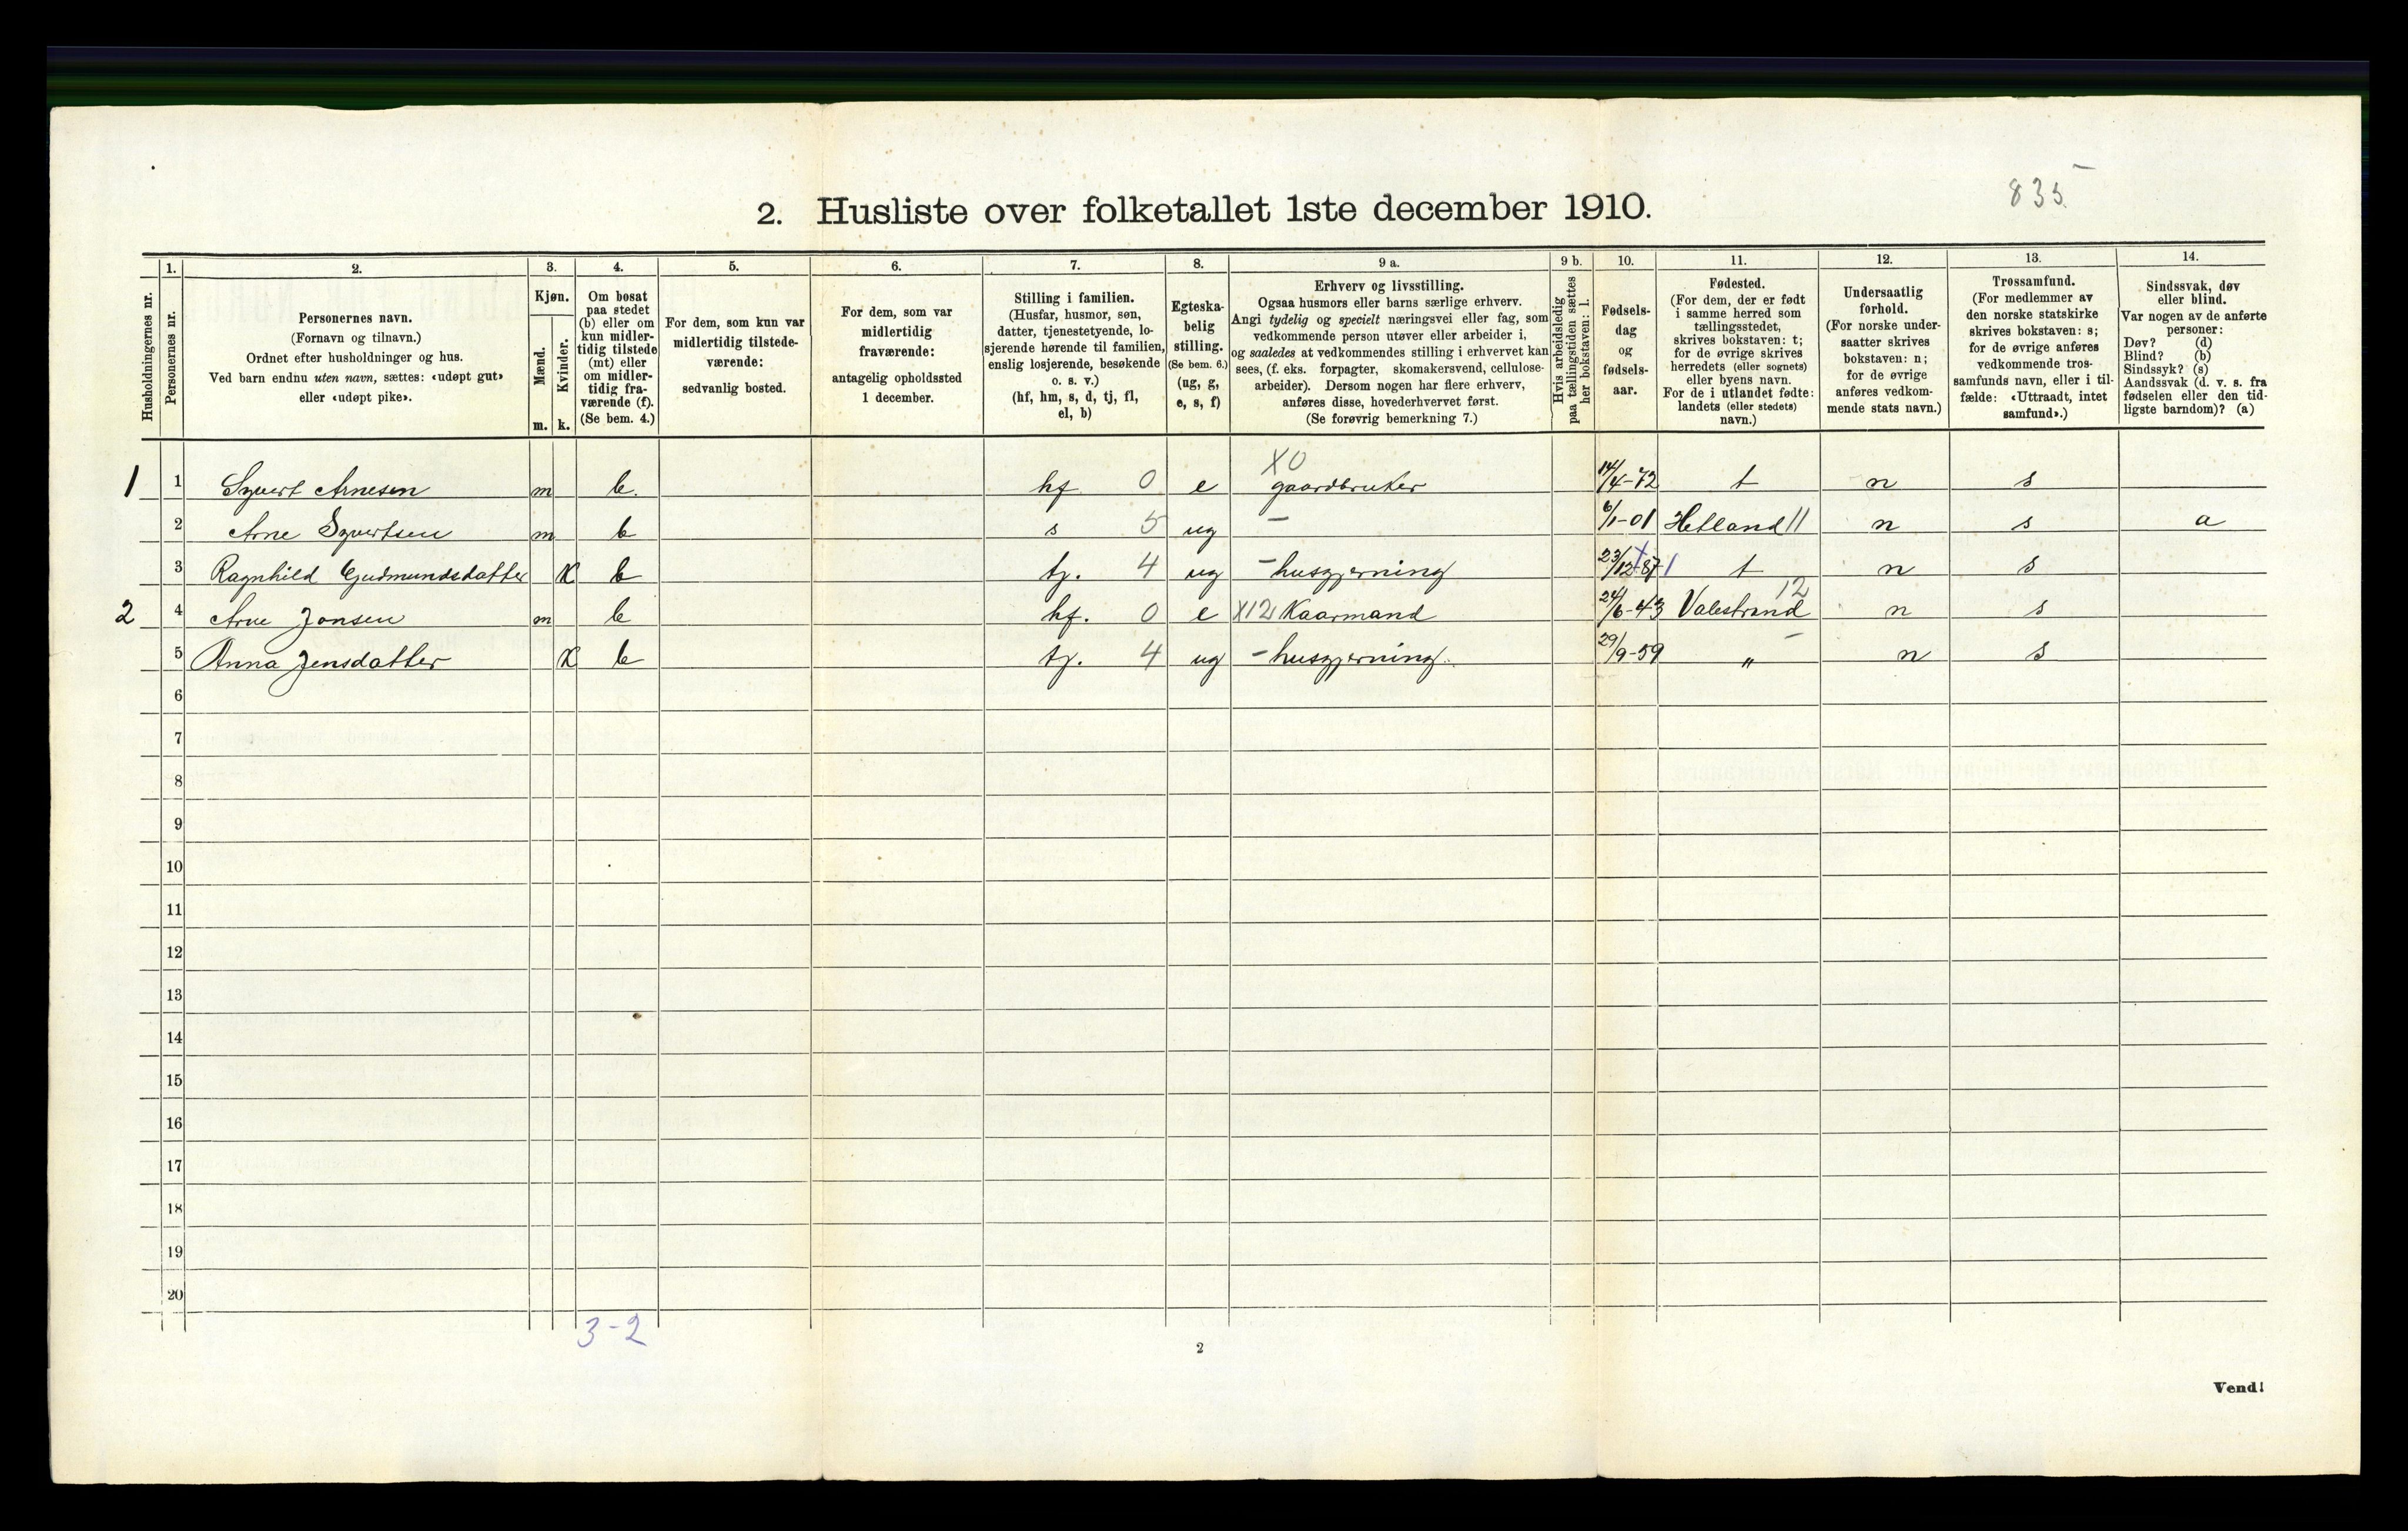 835
2. Husliste over folketallet 1ste december 1910.
Husholdningernes nr.
1.
Personernes nr.
2.
Personernes navn.
(Fornavn og tilnavn.)
Ordnet efter husholdninger og hus.
Ved barn endnu uten navn, sættes: «udøpt gut»
eller «udøpt pike».
3.
Kjøn.
Mænd.
Kvinder.
m. k.
4.
Om bosat
paa stedet
(b) eller om
kun midler-
tidig tilstede
(mt) eller
om midler-
tidig fra-
værende (f).
(Se bem. 4.)
5.
For dem, som kun var
midlertidig tilstede-
værende:
sedvanlig bosted.
6.
For dem, som var
midlertidig
fraværende:
antagelig opholdssted
1 december.
7.
Stilling i familien.
(Husfar, husmor, søn,
datter, tjenestetyende, lo-
sjerende hørende til familien,
enslig losjerende, besøkende
o. s. v.)
(hf, hm, s, d, tj, fl,
el, b)
8.
Egteska-
belig
stilling.
(Se bem. 6.)
(ug, g,
e, s, f)
9 a.
Erhverv og livsstilling.
Ogsaa husmors eller barns særlige erhverv.
Angi tydelig og specielt næringsvei eller fag, som
vedkommende person utøver eller arbeider i,
og saaledes at vedkommendes stilling i erhvervet kan
sees, (f. eks. forpagter, skomakersvend, cellulose-
arbeider). Dersom nogen har flere erhverv,
anføres disse, hovederhvervet først.
(Se forøvrig bemerkning 7.)
9 b.
Hvis arbeidsledig
paa tællingstiden sættes
her bokstaven: l.
10.
Fødsels-
dag
og
fødsels-
aar.
11.
Fødested.
(For dem, der er født
i samme herred som
tællingsstedet,
skrives bokstaven: t;
for de øvrige skrives
herredets (eller sognets)
eller byens navn.
For de i utlandet fødte:
landets (eller stedets)
navn.)
12.
Undersaatlig
forhold.
(For norske under-
saatter skrives
bokstaven: n;
for de øvrige
anføres vedkom-
mende stats navn.)
13.
Trossamfund.
(For medlemmer av
den norske statskirke
skrives bokstaven: s;
for de øvrige anføres
vedkommende tros-
samfunds navn, eller i til-
fælde: «Uttraadt, intet
samfund».)
14.
Sindssvak, døv
eller blind.
Var nogen av de anførte
personer:
Døv? (d)
Blind? (b)
Sindssyk? (s)
Aandssvak (d. v. s. fra
fødselen eller den tid-
ligste barndom)? (a)
X0
1 1 Syvert Arnesen m b. hf 0 e gaardbruker 14/4-72 t n s
2 Arne Syvertsen m b s 5 ug - 6/1-01 Hetland 11 n s a
3 Ragnhild Gudmundsdatter K b tj. 4 ug - husgjerning 23/12-87 1 t n s
2 4 Arne Jonsen m b hf. 0 e X12 Kaarmand 24/6-43 Valestrand 12 n s
5 Anna Jensdatter K b tj. 4 ug - husgjerning. 29/9-59 " - n s
6
7
8
9
10
11
12
13
14
15
16
17
18
19
20
3-2
2
Vend!